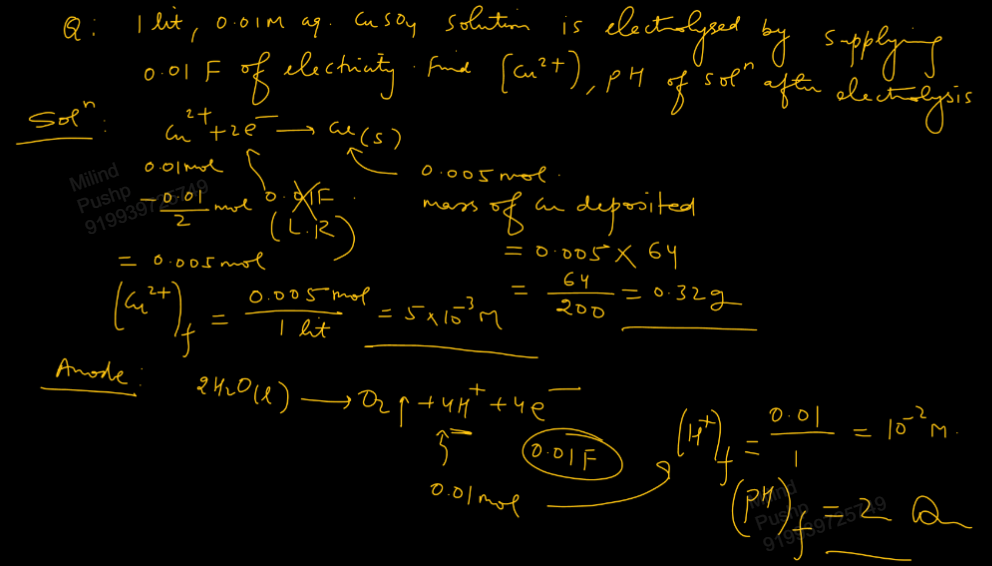 Q: 1 lit, 0.01M aq. CuSO4 solution is electrolysed by supplying
0.01 F of electricity. Find [Cu²⁺], pH of solⁿ after electrolysis
Solⁿ:
Cu²⁺ + 2e⁻ ⟶ Cu(s)
0.01 mol
0.005 mol.
- 0.01/2 mol
0.01F.
(L.R)
mass of Cu deposited
= 0.005 mol
= 0.005 × 64
= 64/200 = 0.32g
[Cu²⁺]f = 0.005 mol / 1 lit = 5×10⁻³ M
Anode:
2H2O(l) ⟶ O2↑ + 4H⁺ + 4e⁻
0.01F
0.01 mol
[H⁺]f = 0.01/1 = 10⁻² M.
(pH)f = 2
Milind
Pushp
919939725749
Milind
Pushp
919939725749